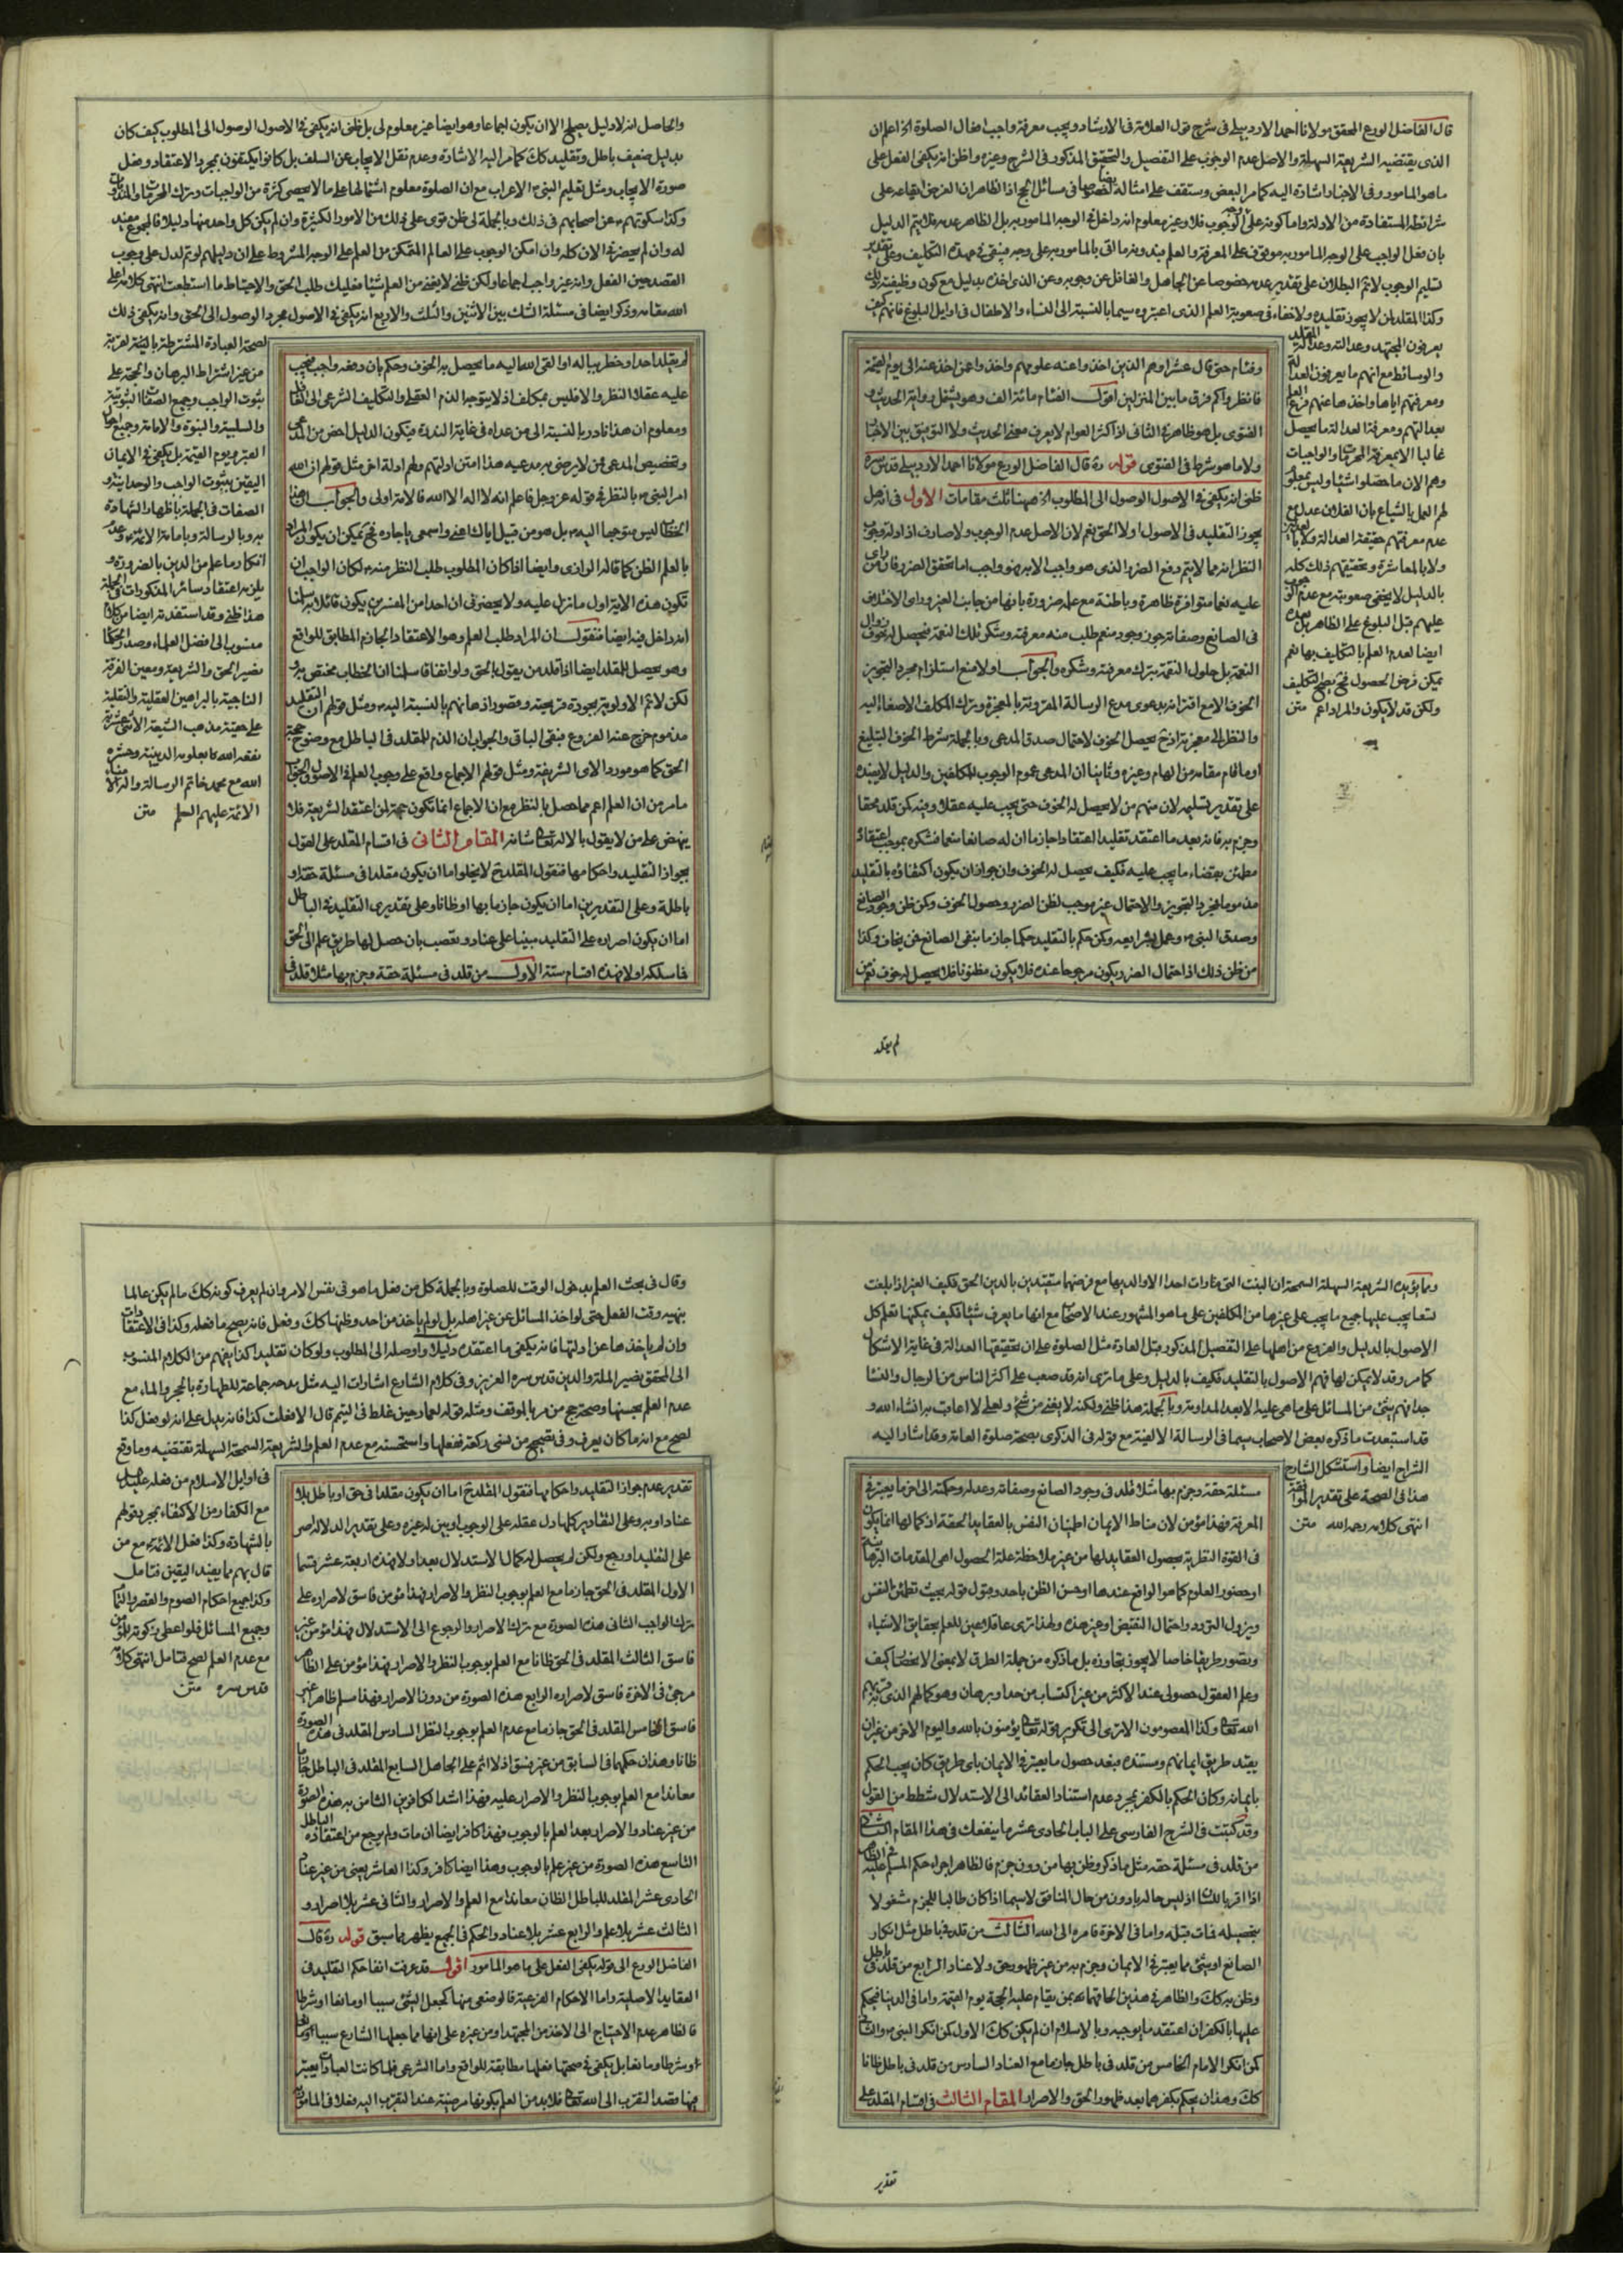 قال الفاضل الورع المحقق مولانا احمد الاردبيلى فى شرح قول العلامة فى الارشاد ويجب معرفة واجب افعال الصلوة الخ اعلم ان
الذى يقتضيه الشريعة السهلة والاصل عدم الوجوب على التفصيل والتحقيق المذكور فى الشرح وغيره واظن انه يكفى الفعل على
ماهو المامور وفى الاخبار اشارة اليه كما مر البعض وستقف على امثاله ايضا فى مسائل الحج اذ الظاهر ان الغرض ايقاعه على
شرائطه المستفادة من الادلة واما كونه على وجه الوجوب فلا وغير معلوم انه داخل فى الوجه المامور به بل الظاهر عدمه فلا يتم الدليل
بان فعل الواجب على الوجه المامور به موقوف على المعرفة والعلم فبدونه ما اتى بالمامور به على وجهه فبقى فى عهدة التكليف وعلى تقدير
تسليم الوجوب لا يتم البطلان على تقدير عدمه خصوصا عن الجاهل والغافل عن وجوبه وعن الذى اخذه بدليل مع كون وظيفته ذلك
وكذا المقلد لمن لا يجوز تقليده ولا خفاء فى صعوبة العلم الذى اعتبروه سيما بالنسبة الى النساء والاطفال فى اوايل البلوغ فانهم كيف
يعرفون المجتهد وعدالته وعدالة المقلد
والوسائط مع انهم ما يعرفون العدالة
ومعرفتهم اياها واخذها عنهم فرع العلم
بعدالتهم ومعرفة العدالة ما يحصل
غالبا الا بمعرفة المحرمات والواجبات
وهم الان ما حصلوا شيئا وليس بمعلوم
لهم العمل بالشياع بان الفلان عدل مع
عدم معرفتهم حقيقة العدالة ولا بالعدلين
ولا بالمعاشرة وتحقيقهم ذلك كله
بالدليل لا يخفى صعوبته مع عدم الوجوب
عليهم قبل البلوغ على الظاهر بل بعده
ايضا لعدم العلم بالتكليف بها نعم
يمكن فرض الحصول فح يصح التكليف
ولكن قد لا يكون والمراد اعم متن
وفئام حتى قال عشرا وهم الذين اخذوا عنه علومهم واخذوا عمن اخذ عنه الى يوم القيمة
فانظروا كم فرق ما بين المنزلين اقول الفئام مائة الف وهو يشمل رواية الحديث و
الفتوى بل هو ظاهر فى الثانى اذ اكثر العوام لا يعرف معنى الحديث ولا التوفيق بين الاخبار
ولا ما هو شرط فى الفتوى قوله ره قال الفاضل الورع مولانا احمد الاردبيلى قدس سره
ظنى انه يكفى فى الاصول الوصول الى المطلوب الخ ههنا ثلث مقامات الاول فى انه هل
يجوز التقليد فى الاصول او لا الحق نعم لان الاصل عدم الوجوب ولا صارف اذ ادلة وجوب
النظر انه مما لا يتم دفع الضرر الذى هو واجب الا به فهو واجب اما تحقق الضرر فان من راى
عليه نعما متوافرة ظاهرة وباطنة مع علمه ضرورة بانها من جانب الغير وراى الاختلاف
فى الصانع وصفاته جوز وجود منعم طلب منه معرفته وشكره تلك النعمة فيحصل له خوف زوال
النعمة بل حلول النقمة بترك معرفته وشكره والجواب اولا منع استلزام مجرد التجويز
الخوف الا مع اقترانه بدعوى مدع الرسالة المقرونة بالمعجزة وترك المكلف الاصغاء اليه
والنظر الى معجزته اذ ح يحصل الخوف لاحتمال صدق المدعى وبالجملة شرط الخوف التبليغ
او ما قام مقامه من الهام وغيره وثانيا ان المدعى عموم الوجوب للمكلفين والدليل لا يفيده
على تقدير تسليمه لان منهم من لا يحصل له الخوف حتى يجب عليه عقلا وفيه كمن قلد محقا
وجزم به فانه بعد ما اعتقد تقليدا اعتقادا جازما ان له صانعا منعما فشكره بموجب اعتقاده
مطمئن بقضاء ما يجب عليه فكيف يحصل له الخوف وان جواز ان يكون اكتفاؤه بالتقليد
مذموما فمجرد التجويز والاحتمال غير موجب لظن الضرر وحصول الخوف وكمن ظن وجود الصانع
وصدق النبى ص وعمل بشرايعه وكمن حكم بالتقليد حكما جازما بنفى الصانع فمن يخاف وكذا
من ظن ذلك اذ احتمال الضرر يكون مرجوحا عنده فلا يكون مظنونا فلا يحصل له خوف نعم من
لم يقلد
والحاصل انه لا دليل يصلح الا ان يكون اجماعا وهو ايضا غير معلوم لى بل ظنى انه يكفى فى الاصول الوصول الى المطلوب كيف كان
بدليل ضعيف باطل وتقليد كك كما مر اليه الاشارة وعدم نقل الايجاب عن السلف بل كانوا يكتفون بمجرد الاعتقاد وفعل
صورة الايجاب ومثل تعليم النبى ص الاعراب مع ان الصلوة معلوم اشتمالها على ما لا يحصى كثرة من الواجبات وترك المحرمات والمندوبات
وكذا سكوتهم ع عن اصحابهم فى ذلك وبالجملة لى ظن قوى على ذلك من الامور الكثيرة وان لم يكن كل واحد منها دليلا فالمجموع مفيد
له وان لم يحضر فى الان كله وان امكن الوجوب على العالم المتمكن من العلم على الوجه المشروط على ان دليلهم لو تم لدل على وجوب
القصد حين الفعل وانه غير واجب اجماعا ولكن ظنى لا يغنى من العلم شيئا فعليك طلب الحق والاحتياط ما استطعت انتهى كلامه اعلى
الله مقامه وذكر ايضا فى مسئلة الشك بين الاثنين والثلث والاربع انه يكفى فى الاصول مجرد الوصول الى الحق وانه يكفى ذلك
لصحة العبادة المشترطة بالنية لقربة
من غير اشتراط البرهان والحجة على
ثبوت الواجب وجميع الصفات الثبوتية
والسلبية والنبوة والامامة وجميع احوال
القبر ويوم القيمة بل يكفى فى الايمان
اليقين بثبوت الواجب والوحدانية و
الصفات فى الجملة باظهار الشهادة
به وبالرسالة وبامامة الائمة ع وعدم
انكار ما علم من الدين بالضرورة و
يلزمه اعتقاد سائر المذكورات فى الجملة
هذا ظنى وقد استفدته ايضا من كلام
منسوب الى افضل العلماء وصدر الحكماء
نصير الحق والشريعة ومعين الفرقة
الناجية بالبراهين العقلية والنقلية
على حقية مذهب الشيعة الاثنى عشرية
نفعه الله كما بعلومه الدينية وحشره
الله مع محمد خاتم الرسالة واله الامناء
الائمة عليهم السلم متن
لم يقلد احدا وخطر بباله او القى الله اليه ما يحصل به الخوف وحكم بان دفعه واجب فيجب
عليه عقلا النظر والا فليس بمكلف اذ لا يتوجه الذم العقلى والتكليف الشرعى الى الغافل
ومعلوم ان هذا نادر بالنسبة الى من عداه فى غاية الندرة فيكون الدليل اخص من المدعى
وتخصيص المدعى بمن لا يرضى به مدعيه هذا امتن ادلتهم ولهم ادلة اخر مثل قولهم ان الله
امر النبى ص بالنظر فى قوله عز وجل فاعلم انه لا اله الا الله فالامة اولى والجواب ان هذا
الخطاب ليس متوجها اليه ص بل هو من قبيل اياك اعنى واسمعى يا جاره فح يمكن ان يكون المراد
بالعلم الظن كما قاله الرازى وايضا اذا كان المطلوب طلب النظر منه ص لكان الواجب ان
تكون هذه الاية اول ما نزل عليه ولا يحضرنى ان احدا من المفسرين يكون قائلا به سلمنا
انه داخل فيه ايضا فنقول ان المراد طلب العلم وهو الاعتقاد الجازم المطابق للواقع
وهو يحصل للمقلد ايضا اذا قلد من يقول بالحق ولو اتفاقا سلمنا ان الخطاب مختص به ص
لكن لا تم الاولوية بجودة قريحته وقصور اذهانهم بالنسبة اليه ص ومثل قولهم ان التقليد
مذموم خرج عنه الفروع فبقى الباقى والجواب ان الذم للمقلد فى الباطل مع وضوح حجية
الحق كما هو مورد الاى الشريفة ومثل قولهم الاجماع واقع على وجوب العلم فى الاصول والجواب
ما مر من ان العلم اعم مما حصل بالنظر مع ان الاجماع انما تكون حجة لمن اعتقد الشريعة فلا
ينهض على من لا يقول بالاله تعالى شانه المقام الثانى فى اقسام المقلد على القول
بجواز التقليد واحكامها فنقول المقلد ح لا يخلوا اما ان يكون مقلدا فى مسئلة حقة او
باطلة وعلى التقديرين اما ان يكون جازما بها او ظانا وعلى تقديرى التقليد فى الباطل
اما ان يكون اصراره على التقليد مبنيا على عناد وتعصب بان حصل لها طريق علم الى الحق
فما سلكه او لا فهذه اقسام ستة الاول من قلد فى مسئلة حقة وجزم بها مثلا قلد فى
ومما يؤيده الشريعة السهلة السمحة ان البنت التى ما رات احدا الا والديها مع فرضهما متقيدين بالدين الحق فكيف الغير اذا بلغت
تسعا يجب عليها جميع ما يجب على غيرها من المكلفين على ما هو المشهور عند الاصحاب مع انها ما يعرف شيئا فكيف يمكنها تعلم كل
الاصول بالدليل والفروع من اهلها على التفصيل المذكور قبل العبادة مثل الصلوة على ان تحقيقها العدالة فى غاية الاشكال
كما مر وقد لا يمكن لها فهم الاصول بالتقليد فكيف بالدليل وعلى ما ترى انه قد صعب على اكثر الناس من الرجال والنساء
جدا فهم شئ من المسائل على ما هى عليه الا بعد المداومة وبالجملة هذا ظنى ولكنه لا يغنى من شئ ولعلى لا اعاقب به انشاء الله و
قد استبعدت ما ذكره بعض الاصحاب سيما فى الرسالة الالفية مع قوله فى الذكرى بصحة صلوة العامة وقد اشار اليه
الشراح ايضا واستشكل الشارح
هذا فى الصحة على تقدير الموافقة
انتهى كلامه رحمه الله متن
مسئلة حقة وجزم بها مثلا قلد فى وجود الصانع وصفاته وعدله وحكمته الى اخر ما يعتبر فى
المعرفة فهذا مؤمن لان مناط الايمان اطمينان النفس بالعقايد الحقة اذ كمالها انما يكون
فى القوة النظرية بحصول العقايد لها من غير ملاحظة علة الحصول اهى المقدمات البرهانية
او حضور العلوم كما هو الواقع عندها او حسن الظن باحد وقبول قوله بحيث تطمئن النفس
ويزول التردد واحتمال النقيض او غير هذه ولهذا ترى عاقلا عين للعلم بحقايق الاشياء
وتصور طريقا خاصا لا يجوز تجاوزه بل ما ذكره من جملة الطرق لا بمعنى الانحصار كيف
وعلم العقول حصولى عند الاكثر من غير اكتساب من حد او برهان وهو كمالهم الذى
الله تعالى وكذا المعصومون الا ترى الى تكرير قوله تعالى يؤمنون بالله واليوم الاخر من غير ان
يقيد طريق ايمانهم ومستنده فبعد حصول ما يعتبر فى الايمان باى طريق كان يجب الحكم
بايمانه وكان الحكم بالكفر بمجرد عدم استناد العقائد الى الاستدلال شطط من القول
وقد كتبت فى الشرح الفارسى على الباب الحادى عشر ما ينفعك فى هذا المقام الثانى
من قلد فى مسئلة حقة مثل ما ذكر وظن بها من دون جزم فالظاهر اجراء حكم المسلم عليه فى الظاهر
اذا اقر باللسان اذ ليس حاله بادون من حال المنافق لا سيما اذا كان طالبا للجزم مشغولا
بتحصيله فمات قبله واما فى الاخرة فامره الى الله الثالث من قلد فى باطل مثل انكار
الصانع او شئ مما يعتبر فى الايمان وجزم به من غير ظهور حق ولا عناد الرابع من قلد فى باطل
وظن به كك والظاهر فى هذين الحاقهما بمن يقام عليه الحجة يوم القيمة واما فى الدنيا فيحكم
عليهما بالكفر ان اعتقد ما يوجبه وبالاسلام ان لم يكن كك الاول كمن انكر النبى ص والثانى
كمن انكر الامام الخامس من قلد فى باطل جازما مع العناد السادس من قلد فى باطل ظانا
كك وهذان يحكم بكفرهما بعد ظهور الحق والاصرار المقام الثالث فى اقسام المقلد على
تقدير
وقال فى بحث العلم بدخول الوقت للصلوة وبالجملة كل من فعل ما هو فى نفس الامر وان لم يعرف كونه كك ما لم يكن عالما
بنهيه وقت الفعل حتى لو اخذ المسائل عن غير اهله بل لو لم ياخذ من احد وظنها كك وفعل فانه يصح ما فعله وكذا فى الاعتقادات
وان لم ياخذها عن ادلتها فانه يكفى ما اعتقده دليلا واوصله الى المطلوب ولو كان تقليدا كذا يفهم من الكلام المنسوب
الى المحقق نصير الملة والدين قدس سره العزيز وفى كلام الشارع اشارات اليه مثل مدحه جماعة للطهارة بالحجر والماء مع
عدم العلم بحسنها وصحة حج من مر بالموقف ومثل قوله لعمار حين غلط فى التيمم قال الا فعلت كذا فانه يدل على انه لو فعل كذا
لصح مع انه ما كان يعرف وفى تصحيح من نسى ركعة ففعلها واستحسنه مع عدم العلم والشريعة السمحة السهلة تقتضيه وما وقع
فى اوايل الاسلام من فعله عليه السلم
مع الكفار من الاكتفاء بمجرد قولهم
بالشهادة وكذا فعل الائمة ع مع من
قال بهم مما يفيد اليقين فتامل
وكذا جميع احكام الصوم والقصر والتمام
وجميع المسائل فلو اعطى زكوته للمؤمن
مع عدم العلم لصح فتامل انتهى كلامه
قدس سره متن
تقدير عدم جواز التقليد واحكامها فنقول المقلد ح اما ان يكون مقلدا فى حق او باطل بلا
عناد او به وعلى التقادير كلها دل عقله على الوجوب او بين له غيره وعلى تقدير الدلالة اصر
على التقليد او رجع ولكن لم يحصل له كمال الاستدلال بعد او لا فهذه اربعة عشر قسما
الاول المقلد فى الحق جازما مع العلم بوجوب النظر والاصرار فهذا مؤمن فاسق لاصراره على
ترك الواجب الثانى هذه الصورة مع ترك الاصرار والرجوع الى الاستدلال فهذا مؤمن غير
فاسق الثالث المقلد فى الحق ظانا مع العلم بوجوب النظر والاصرار فهذا مؤمن على الظاهر
مرجئ فى الاخرة فاسق لاصراره الرابع هذه الصورة من دون الاصرار فهذا مسلم ظاهرا غير
فاسق الخامس المقلد فى الحق جازما مع عدم العلم بوجوب النظر السادس المقلد فى هذه الصورة
ظانا وهذان حكمهما فى السابق من غير فسق اذ لا اثم على الجاهل السابع المقلد فى الباطل جازما
معاندا مع العلم بوجوب النظر والاصرار عليه فهذا اشد الكافرين الثامن به هذه الصورة
من غير عناد والاصرار بعد العلم بالوجوب فهذا كافر ايضا ان مات ولم يرجع من اعتقاده الباطل
التاسع هذه الصورة من غير علم بالوجوب وهذا ايضا كافر وكذا العاشر يعنى من غير عناد
الحادى عشر المقلد للباطل الظان معاندا مع العلم والاصرار والثانى عشر بلا اصرار و
الثالث عشر بلا علم والرابع عشر بلا عناد والحكم فى الجميع يظهر مما سبق قوله ره قال
الفاضل الورع الى قوله يكفى الفعل على ما هو المامور اقول قد عرفت انفا حكم التقليد فى
العقايد الاصلية واما الاحكام الفرعية فالوضعى منها كجعل الشئ سببا او مانعا او شرطا
فالظاهر عدم الاحتياج الى الاخذ من المجتهد او من غيره على انها مما جعلها الشارع سببا
او شرطا ومانعا بل يكفى فى صحتها فعلها مطابقة للواقع واما الشرعى فلما كانت العبادات يعتبر
فيها قصد التقرب الى الله تعالى فلا بد من العلم بكونها مرضية عند التقرب اليه فعلا فى المامور